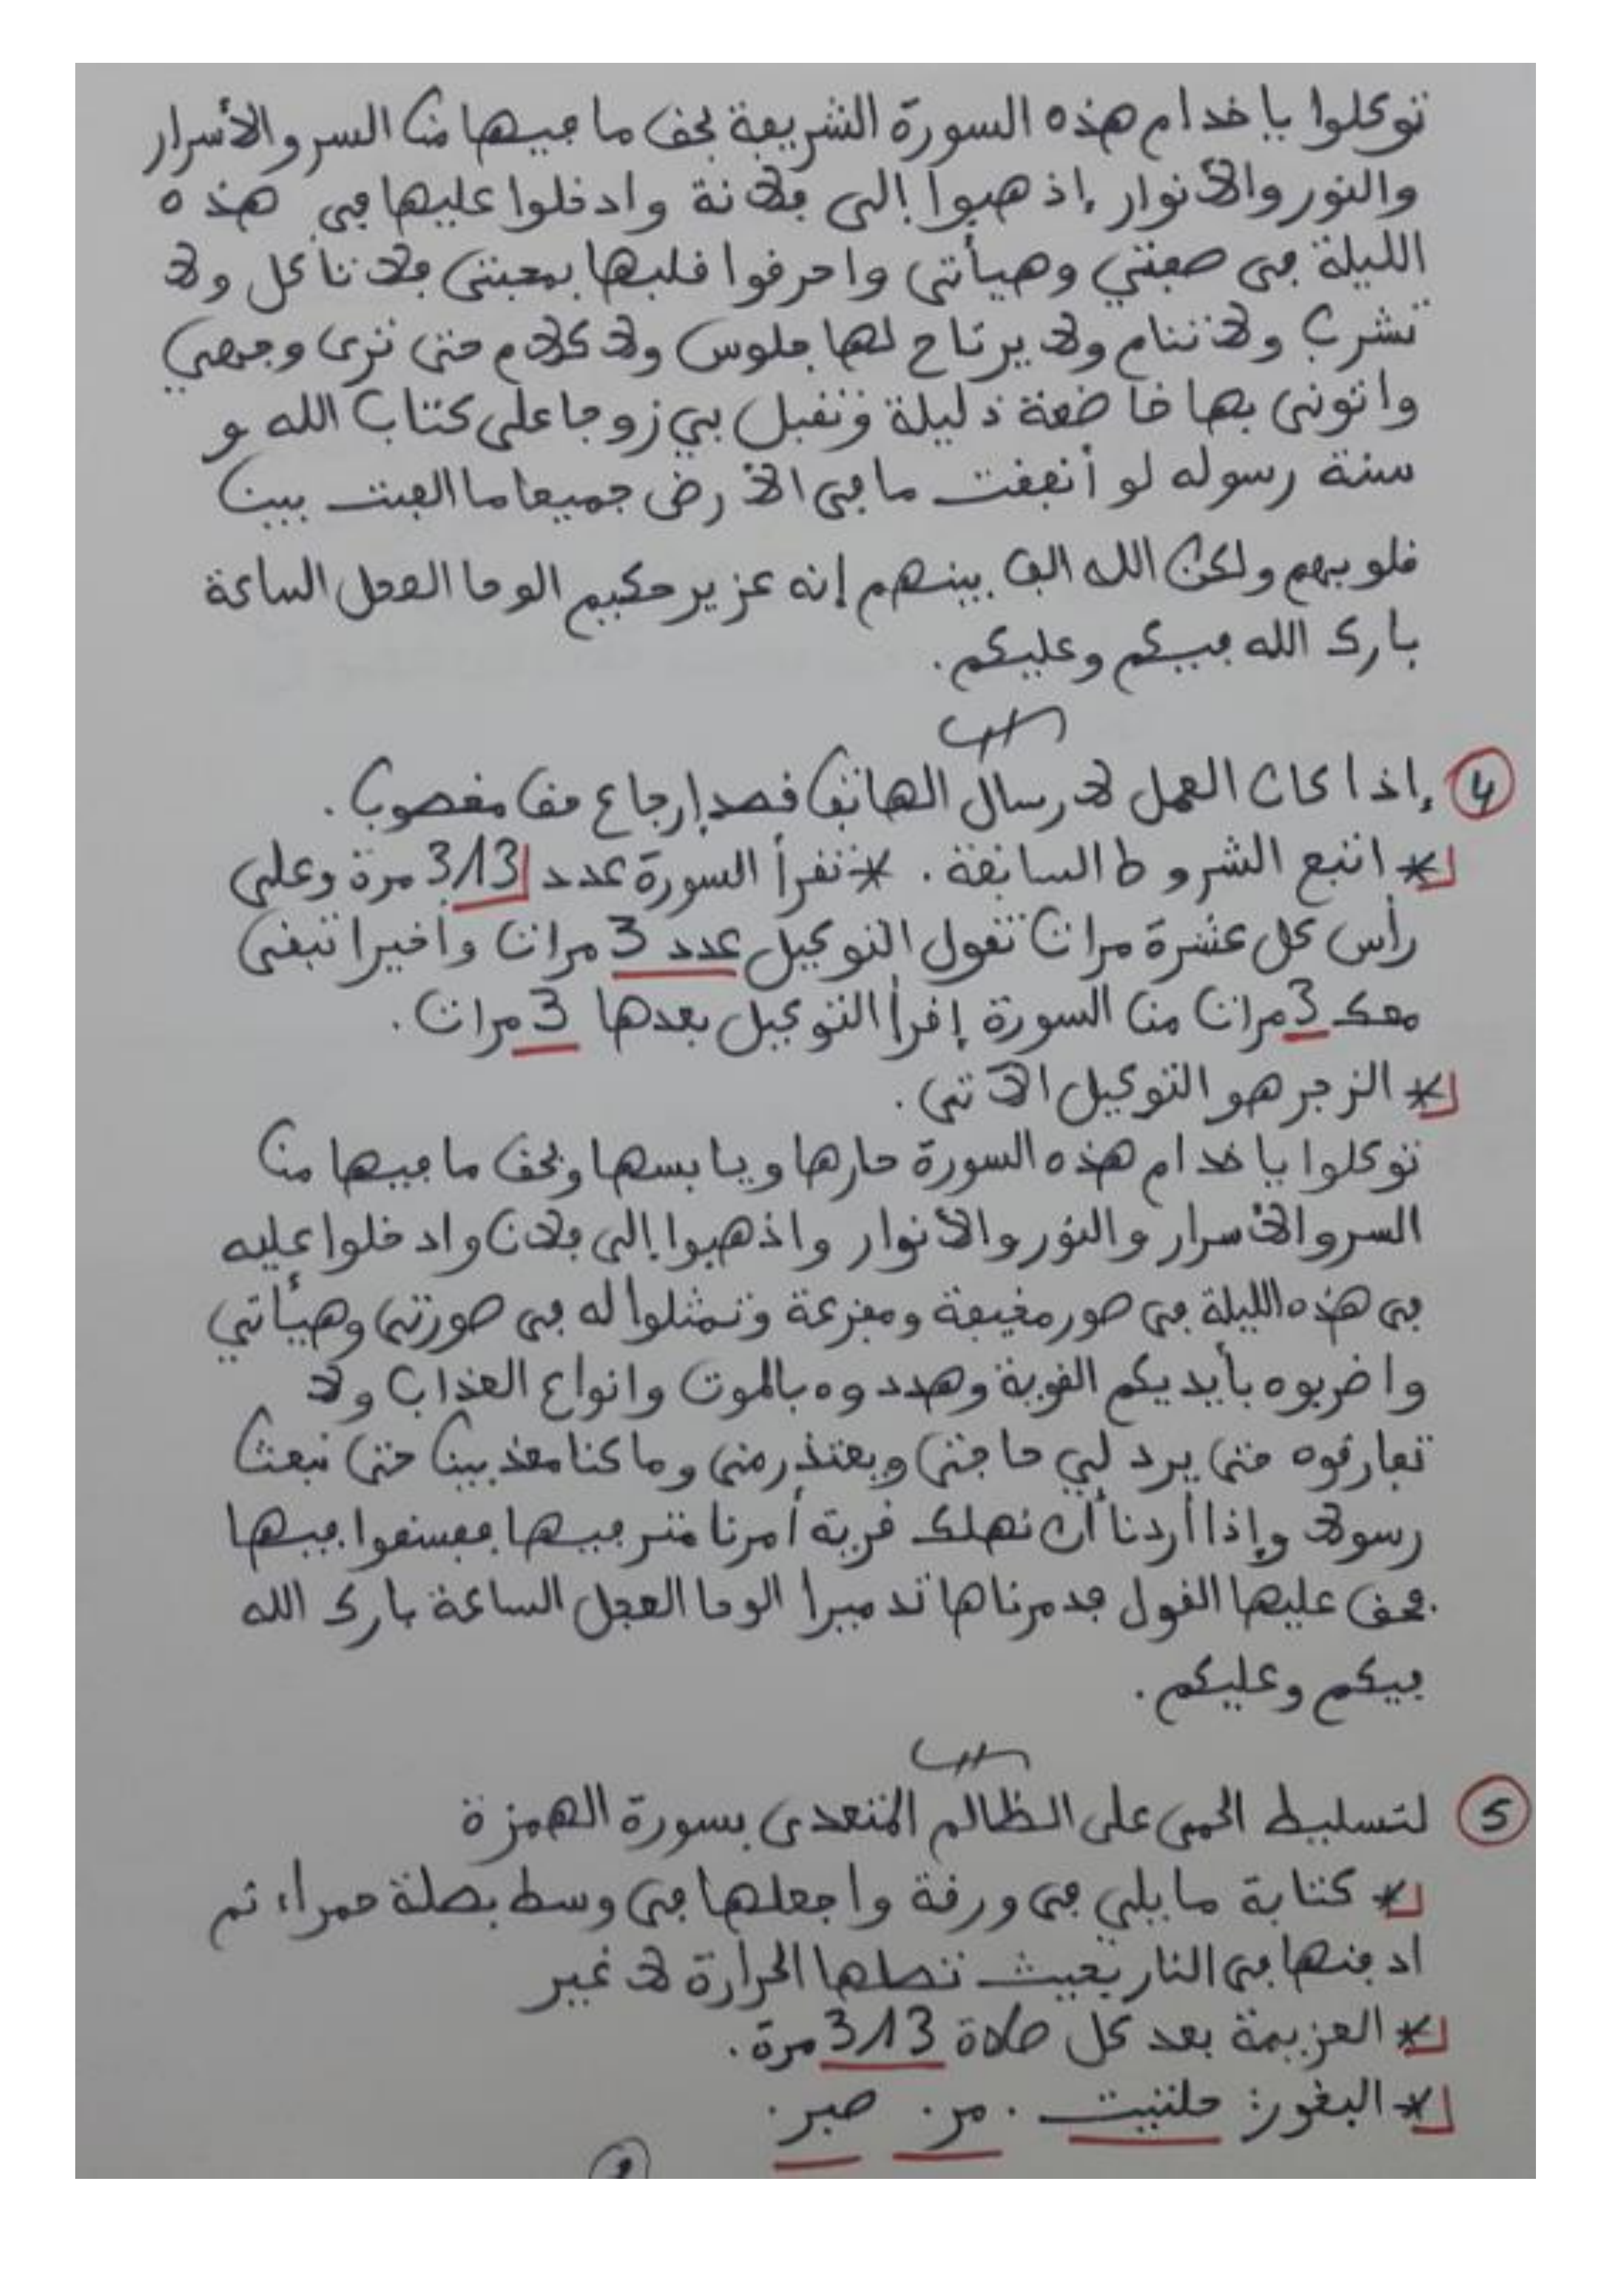 توكلوا يا خدام هذه السورة الشريفة بحق ما فيها من السر والأسرار
والنور والأنوار إذهبوا إلى فلانة وادخلوا عليها في هذه
الليلة في صفتي وهيأتي واحرقوا قلبها بمحبتي فلا تأكل ولا
تشرب ولا تنام ولا يرتاح لها جلوس ولا كلام حتى ترى وجهي
واتوني بها خاضعة ذليلة وتقبل بي زوجا على كتاب الله و
سنة رسوله لو أنفقت ما في الأرض جميعا ما الفت بين
قلوبهم ولكن الله الف بينهم إنه عزيز حكيم الوحا العجل الساعة
بارك الله فيكم وعليكم.
4 إذا كان العمل لارسال الهاتف قصد إرجاع حق مغصوب.
* اتبع الشروط السابقة. * تقرأ السورة عدد 313 مرة وعلى
رأس كل عشرة مرات تقول التوكيل عدد 3 مرات وأخيرا تبقى
معك 3 مرات من السورة إقرأ التوكيل بعدها 3 مرات.
* الزجر هو التوكيل الآتي.
توكلوا يا خدام هذه السورة حارها ويابسها وبحق ما فيها من
السر والأسرار والنور والأنوار واذهبوا إلى فلان وادخلوا عليه
في هذه الليلة في صور مخيفة ومفزعة وتمثلوا له في صورتي وهيأتي
واضربوه بأيديكم القوية وهددوه بالموت وانواع العذاب ولا
تفارقوه حتى يرد لي حاجتي ويعتذر مني وما كنا معذبين حتى نبعث
رسولا وإذا أردنا أن نهلك قرية أمرنا مترفيها ففسقوا فيها
فحق عليها القول فدمرناها تدميرا الوحا العجل الساعة بارك الله
فيكم وعليكم.
5 لتسليط الحمى على الظالم المتعدي بسورة الهمزة
* كتابة ما يلي في ورقة واجعلها في وسط بصلة حمراء ثم
ادفنها في النار بحيث تصلها الحرارة لا غير
* العزيمة بعد كل صلاة 313 مرة.
* البخور: حلتيت. مر. صبر.